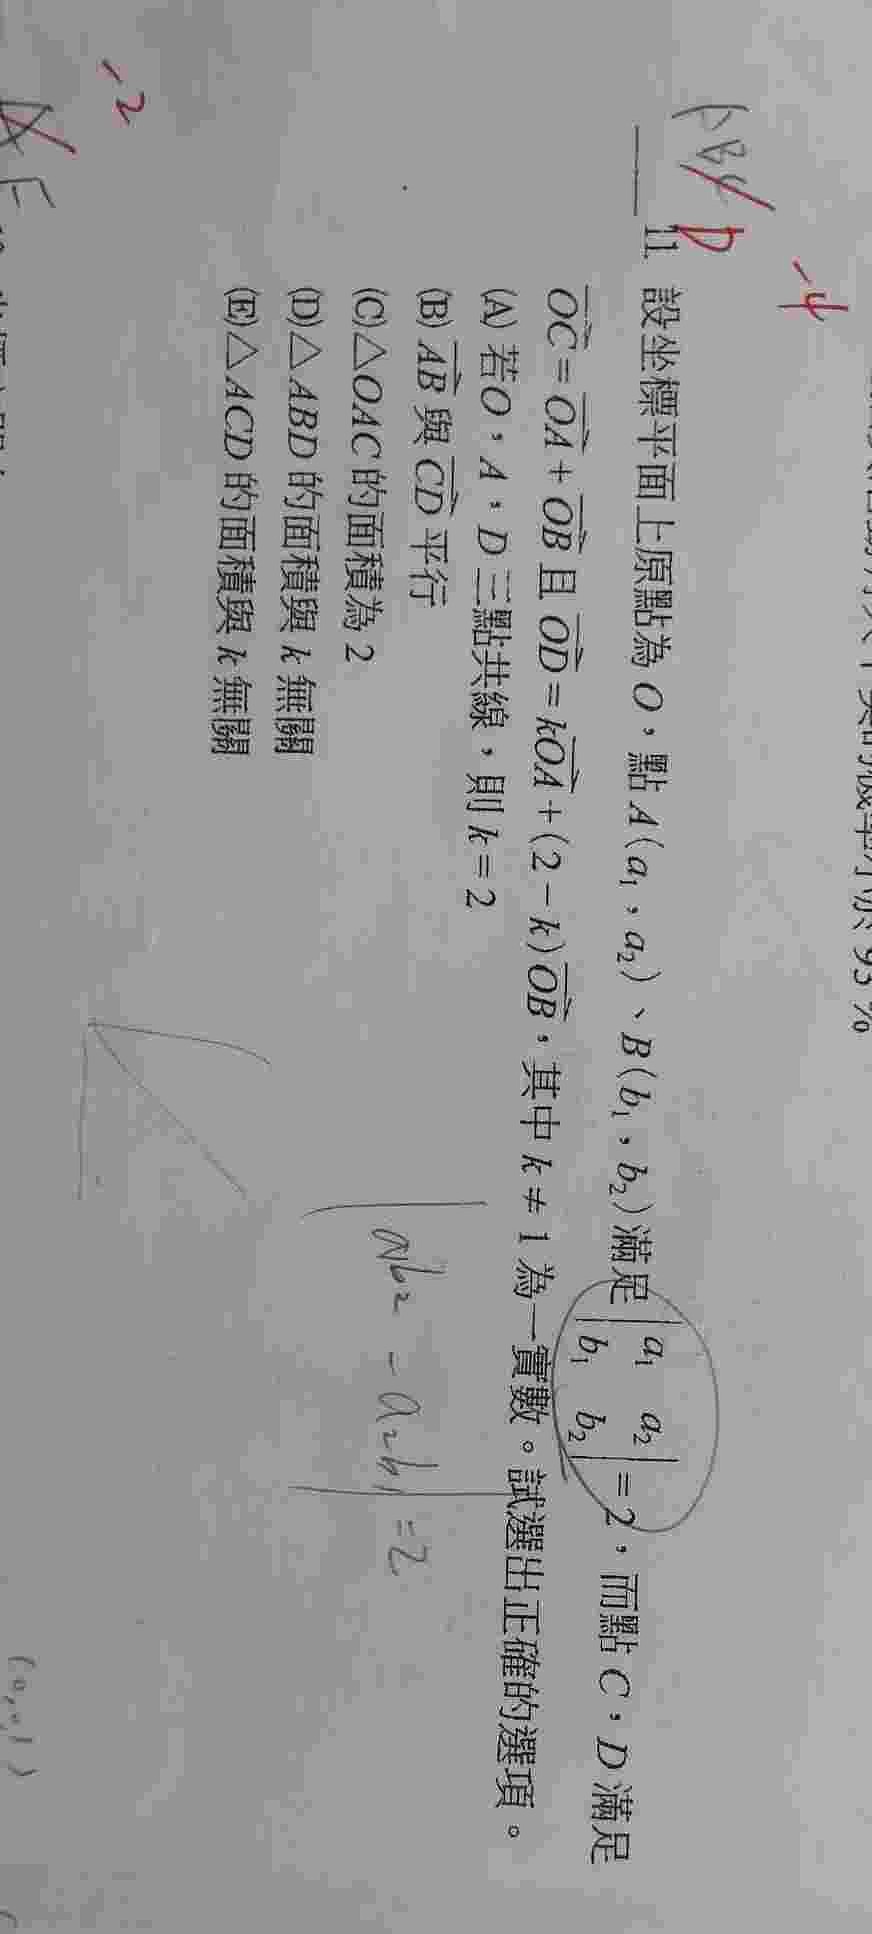 -4
ABC D
11. 設坐標平面上原點為 O，點 A(a₁，a₂)、B(b₁，b₂)滿足 |a₁ a₂| = 2，而點 C，D 滿足
|b₁ b₂|
OC = OA + OB 且 OD = kOA + (2 − k)OB，其中 k ≠ 1 為一實數。試選出正確的選項。
(A) 若O，A，D 三點共線，則 k = 2
(B) AB 與 CD 平行
(C) △OAC 的面積為 2
(D) △ABD 的面積與 k 無關
(E) △ACD 的面積與 k 無關
a₁b₂ − a₂b₁ = 2
-2